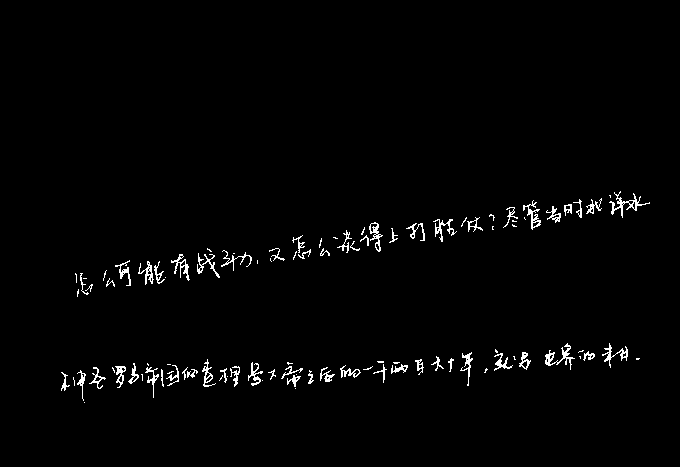 怎么可能有战斗力,又怎么谈得上打胜仗?尽管当时北洋水
神圣罗马帝国的查理曼大帝之后的一千两百六十年,就是世界的末日.